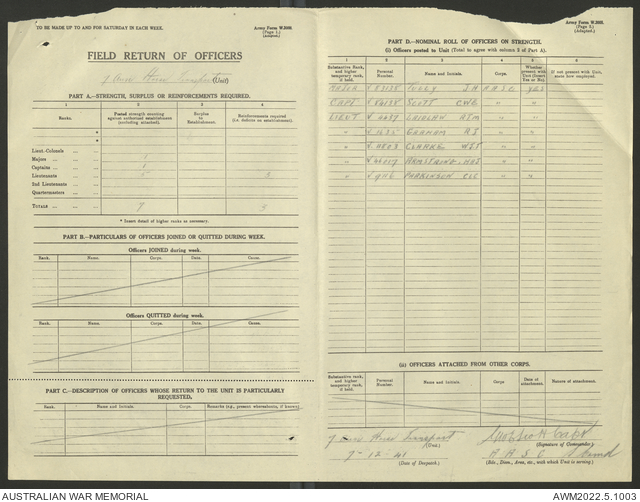 TO BE MADE UP TO AND FOR SATURDAY IN EACH WEEK.
Army Form W.3008.
(Page 1.)
(Adapted.)
FIELD RETURN OF OFFICERS
(Unit)
PART A.—STRENGTH, SURPLUS OR REINFORCEMENTS REQUIRED.
1 2 3 4
Ranks. Posted strength counting against authorised establishment (excluding attached). Surplus to Establishment. Reinforcements required (i.e. deficits on establishment).
*
*
Lieut.-Colonels
Majors 1
Captains 1
Lieutenants 5 3
2nd Lieutenants
Quartermasters
TOTALS 7 3
* Insert detail of higher ranks as necessary.
PART B.—PARTICULARS OF OFFICERS JOINED OR QUITTED DURING WEEK.
Officers JOINED during week.
Rank. Name. Corps. Date. Cause.
Officers QUITTED during week.
Rank. Name. Corps. Date. Cause.
PART C.—DESCRIPTION OF OFFICERS WHOSE RETURN TO THE UNIT IS PARTICULARLY REQUESTED,
Rank. Name and Initials. Corps. Remarks (e.g., present whereabouts, if known).
Army Form W.3008.
(Page 2.)
(Adapted.)
PART D.—NOMINAL ROLL OF OFFICERS ON STRENGTH.
(i) Officers posted to Unit (Total to agree with column 2 of Part A).
1 2 3 4 5 6
Substantive Rank, and higher temporary rank, it held. Personal Number. Name and Initials. Corps. Whether present with Unit (Insert Yes or No). If not present with Unit, state how employed.
MAJOR TULLY J.H. AASC YES
CAPT SCOTT CWE " "
LIEUT LAIDLAW " "
" GRAHAM " "
" CLARKE " "
" ARMSTRONG " "
" PARKINSON CLC " "
(ii) OFFICERS ATTACHED FROM OTHER CORPS.
Substantive rank, and higher temporary rank, it held. Personal Number. Name and Initials. Corps. Date of attachment. Nature of attachment.
Transport
(Unit.)
(Signature of Commander.)
7-12-41
A A S C
(Date of Despatch.)
(Bde., Divn., Area, etc., with which Unit is serving.)
AUSTRALIAN WAR MEMORIAL
AWM2022.5.1003